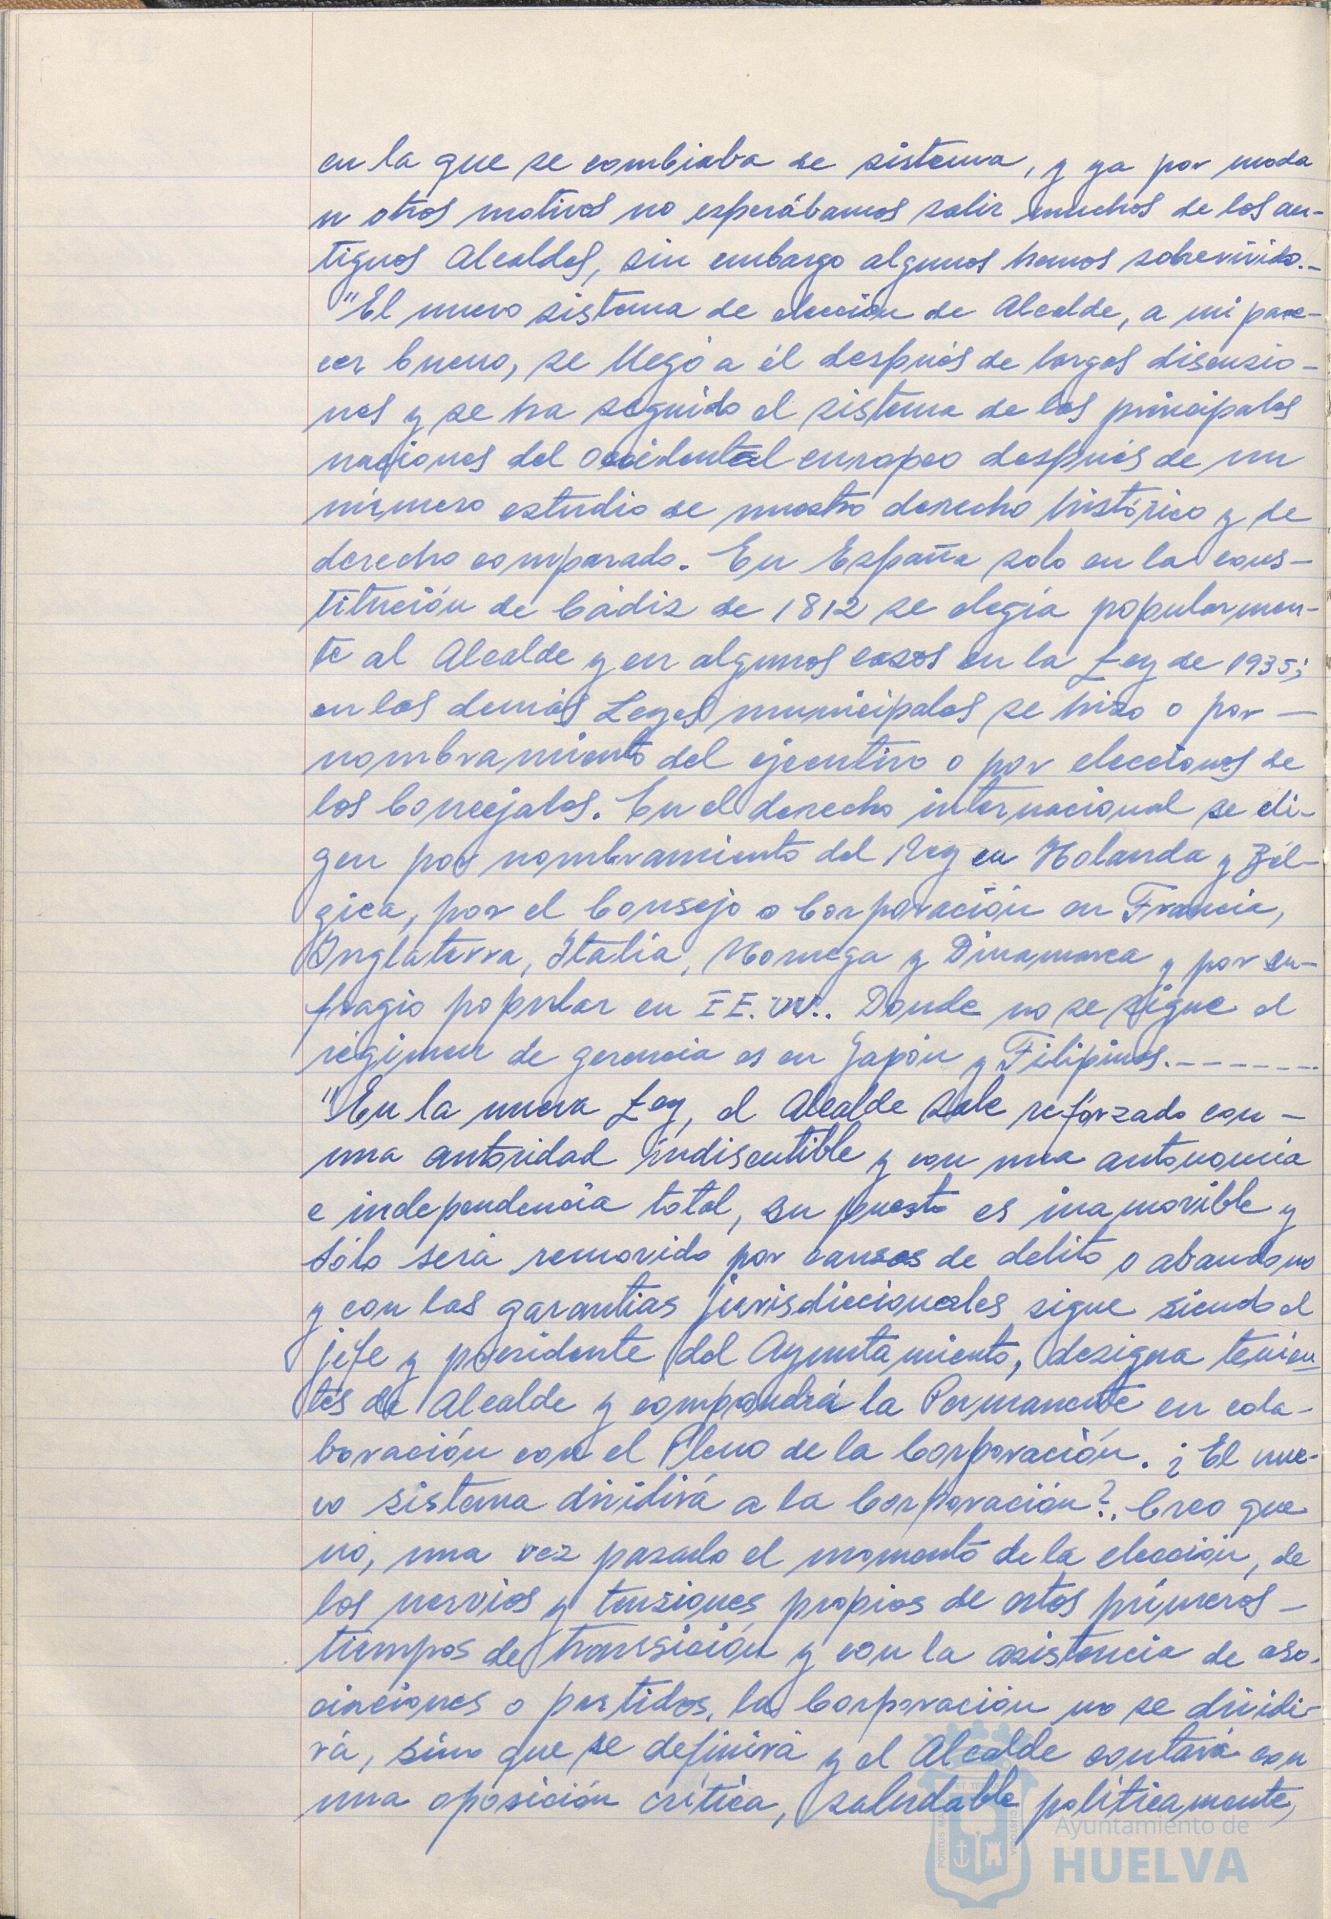 en la que se cambiaba de sistema, y ya por moda
u otros motivos no esperábamos salir muchos de los an-
tiguos Alcaldes, sin embargo algunos hemos sobrevivido.-
"El nuevo sistema de elección de Alcalde, a mi pare-
cer bueno, se llegó a él después de largas discusio-
nes y se ha seguido el sistema de las principales
naciones del Occidental europeo después de un
número estudio de nuestro derecho histórico y de
derecho comparado. En España solo en la cons-
titución de Cádiz de 1812 se elegía popularmen-
te al Alcalde y en algunos casos en la Ley de 1935;
en las demás Leyes municipales se hizo o por —
nombramiento del ejecutivo o por elecciones de
los Concejales. En el derecho internacional se eli-
gen por nombramiento del Rey en Holanda y Bél-
gica, por el Consejo o Corporación en Francia,
Inglaterra, Italia, Noruega y Dinamarca y por su-
fragio popular en EE.UU.. Donde no se sigue el
régimen de gerencia es en Japón y Filipinas.-------
"En la nueva Ley, el Alcalde sale reforzado con —
una autoridad indiscutible y con una autonomía
e independencia total, su puesto es inamovible y
sólo será removido por causas de delito o abandono
y con las garantías jurisdiccionales sigue siendo el
jefe y presidente del Ayuntamiento, designa tenien-
tes de Alcalde y compondrá la Permanente en cola-
boración con el Pleno de la Corporación. ¿El nue-
vo sistema dividirá a la Corporación?. Creo que
no, una vez pasado el momento de la elección, de
los nervios y tensiones propios de estos primeros —
tiempos de transición y con la asistencia de aso-
ciaciones o partidos, la Corporación no se dividi-
rá, sino que se definirá y el Alcalde contará con
una oposición crítica, saludable políticamente,
Ayuntamiento de
HUELVA